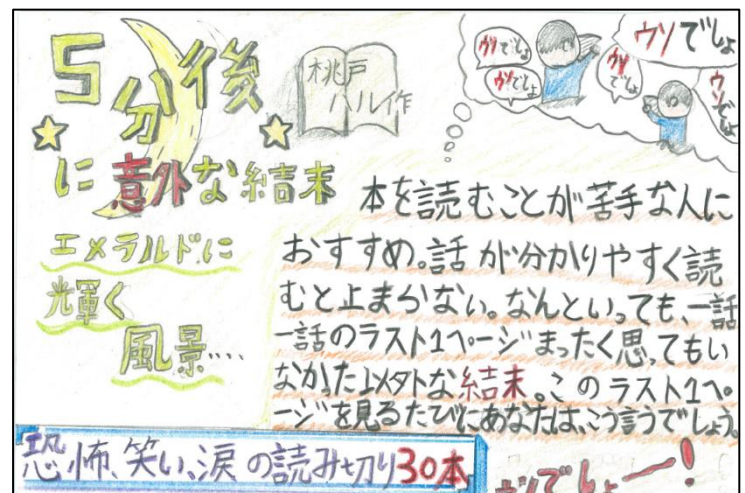 5分後
に意外な結末
桃戸
ハル作
エメラルドに
輝く
風景…
ウソでしょ
ウソでしょ
ウソでしょ
ウソでしょ
ウソでしょ
本を読むことが苦手な人に
おすすめ。話が分かりやすく読
むと止まらない。なんといっても、一話
一話のラスト1ページまったく思ってもい
なかった
な結末。このラスト1ペ
ージを見るたびにあなたは、こう言うでしょう。
恐怖、笑い、涙の読み切り30本
ウソでしょー!